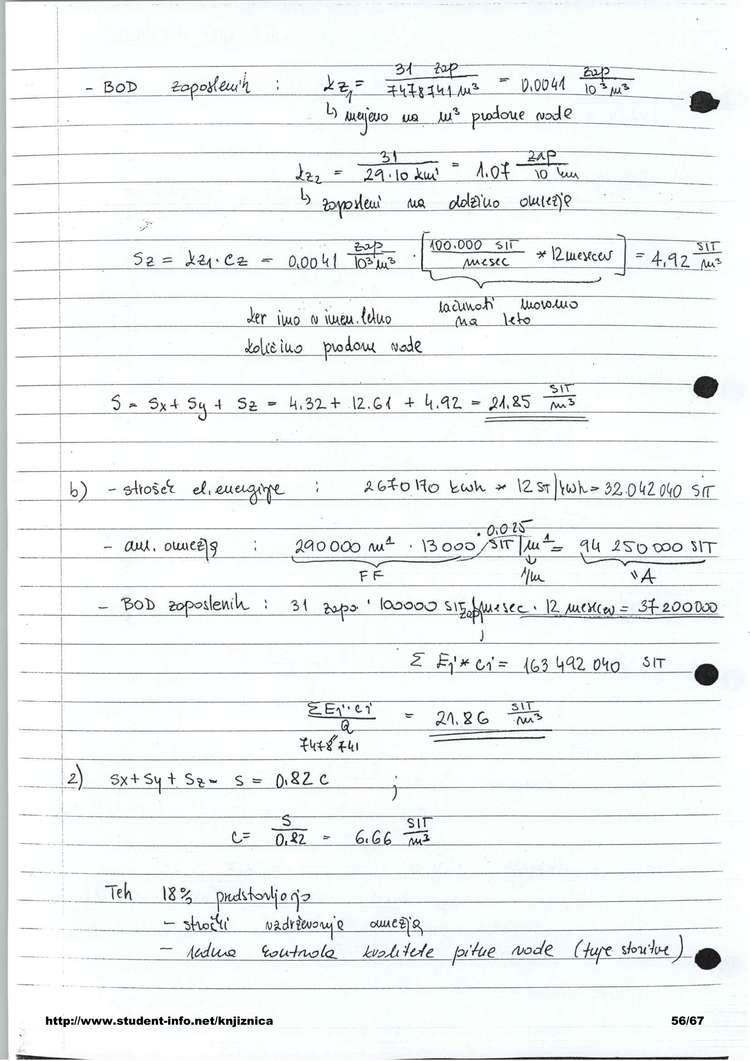 - BOD zaposlenih : kz₁ = 31 zap / 7478741 m³ = 0,0041 zap / 10³ m³
↳ merjeno na m³ prodane vode
kz₂ = 31 / 29·10 km = 1.07 zap / 10 km
↳ zaposleni na dolžino omrežja
Sz = kz₁ · cz = 0,0041 zap / 10³ m³ · [100.000 SIT / mesec * 12 mesecev] = 4,92 SIT / m³
ker imo v imen. letno računati moramo na leto
količino prodane vode
S = Sx + Sy + Sz = 4.32 + 12.61 + 4.92 = 21.85 SIT / m³
b) - strošek el. energije : 2670170 kwh * 12 SIT/kwh = 32.042040 SIT
- am. omrežja : 290000 m¹ · 13000 · 0,025 SIT/m¹ = 94 250 000 SIT
FF 1/m "A
- BOD zaposlenih : 31 zapo · 100000 SIT/zap mesec · 12 mesecev = 37200000
;
Σ Ei * ci = 163 492 040 SIT
Σ Ei · ci / Q = 21.86 SIT / m³
7478741
2) Sx + Sy + Sz = S = 0.82 c ;
c = S / 0.82 = 6.66 SIT / m³
Teh 18% predstavljajo
- stroški vzdrževanja omrežja
- redna kontrola kvalitete pitne vode (tuje storitve)
http://www.student-info.net/knjiznica 56/67